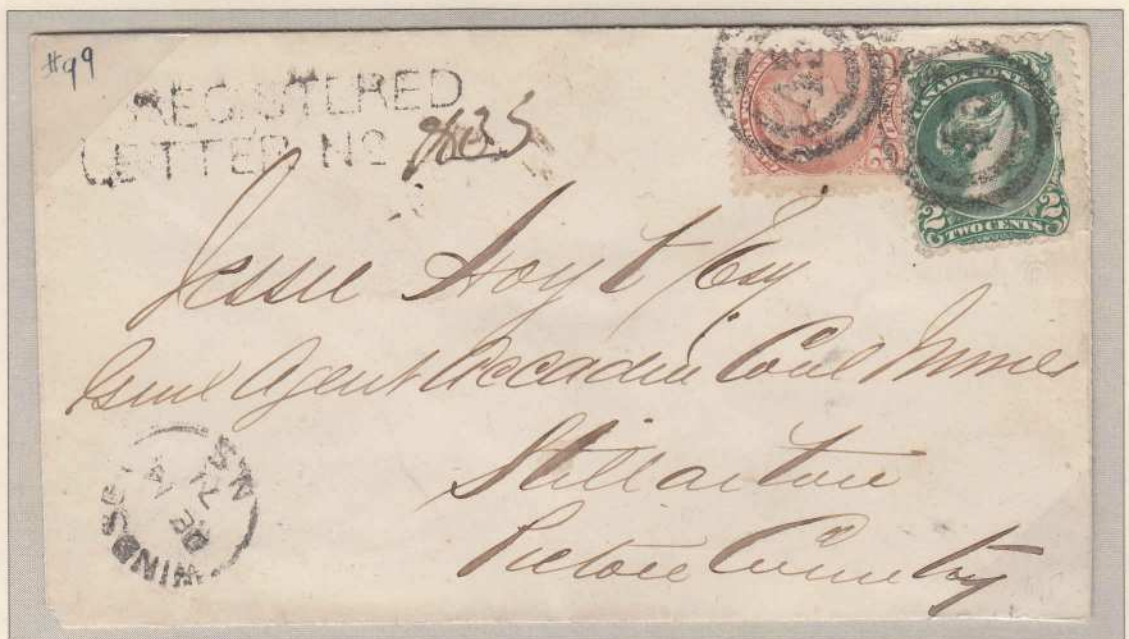 #99
REGISTERED
LETTER No 9635
CANADA POSTAGE
2 2
TWO CENTS
Jessie Hoyt Esq
Genl Agent Accadia Coal Mines
Stillartore
Pictore County
WINDSOR N.S
DE